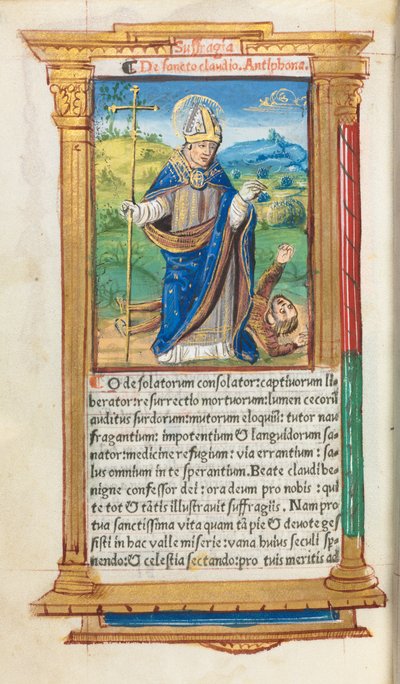 Suffragia
De sancto claudio. Antiphona.
O desolatorum consolator: captiuorum li
berator: resurrectio mortuorum: lumen cecorū
auditus surdorum: mutorum eloquiū: tutor nau
fragantium: impotentium & languidorum sa
nator: medicine refugium: via errantium: sa
lus omnium in te sperantium. Beate claudi be
nigne confessor dei: ora deum pro nobis: qui
te tot & tātis illustrauit suffragiis. Nam pro
tua sanctissima vita quam tā pie & deuote ges
sisti in hac valle miserie: vana huius seculi sp̄
nendo: & celestia sectando: pro tuis meritis ad